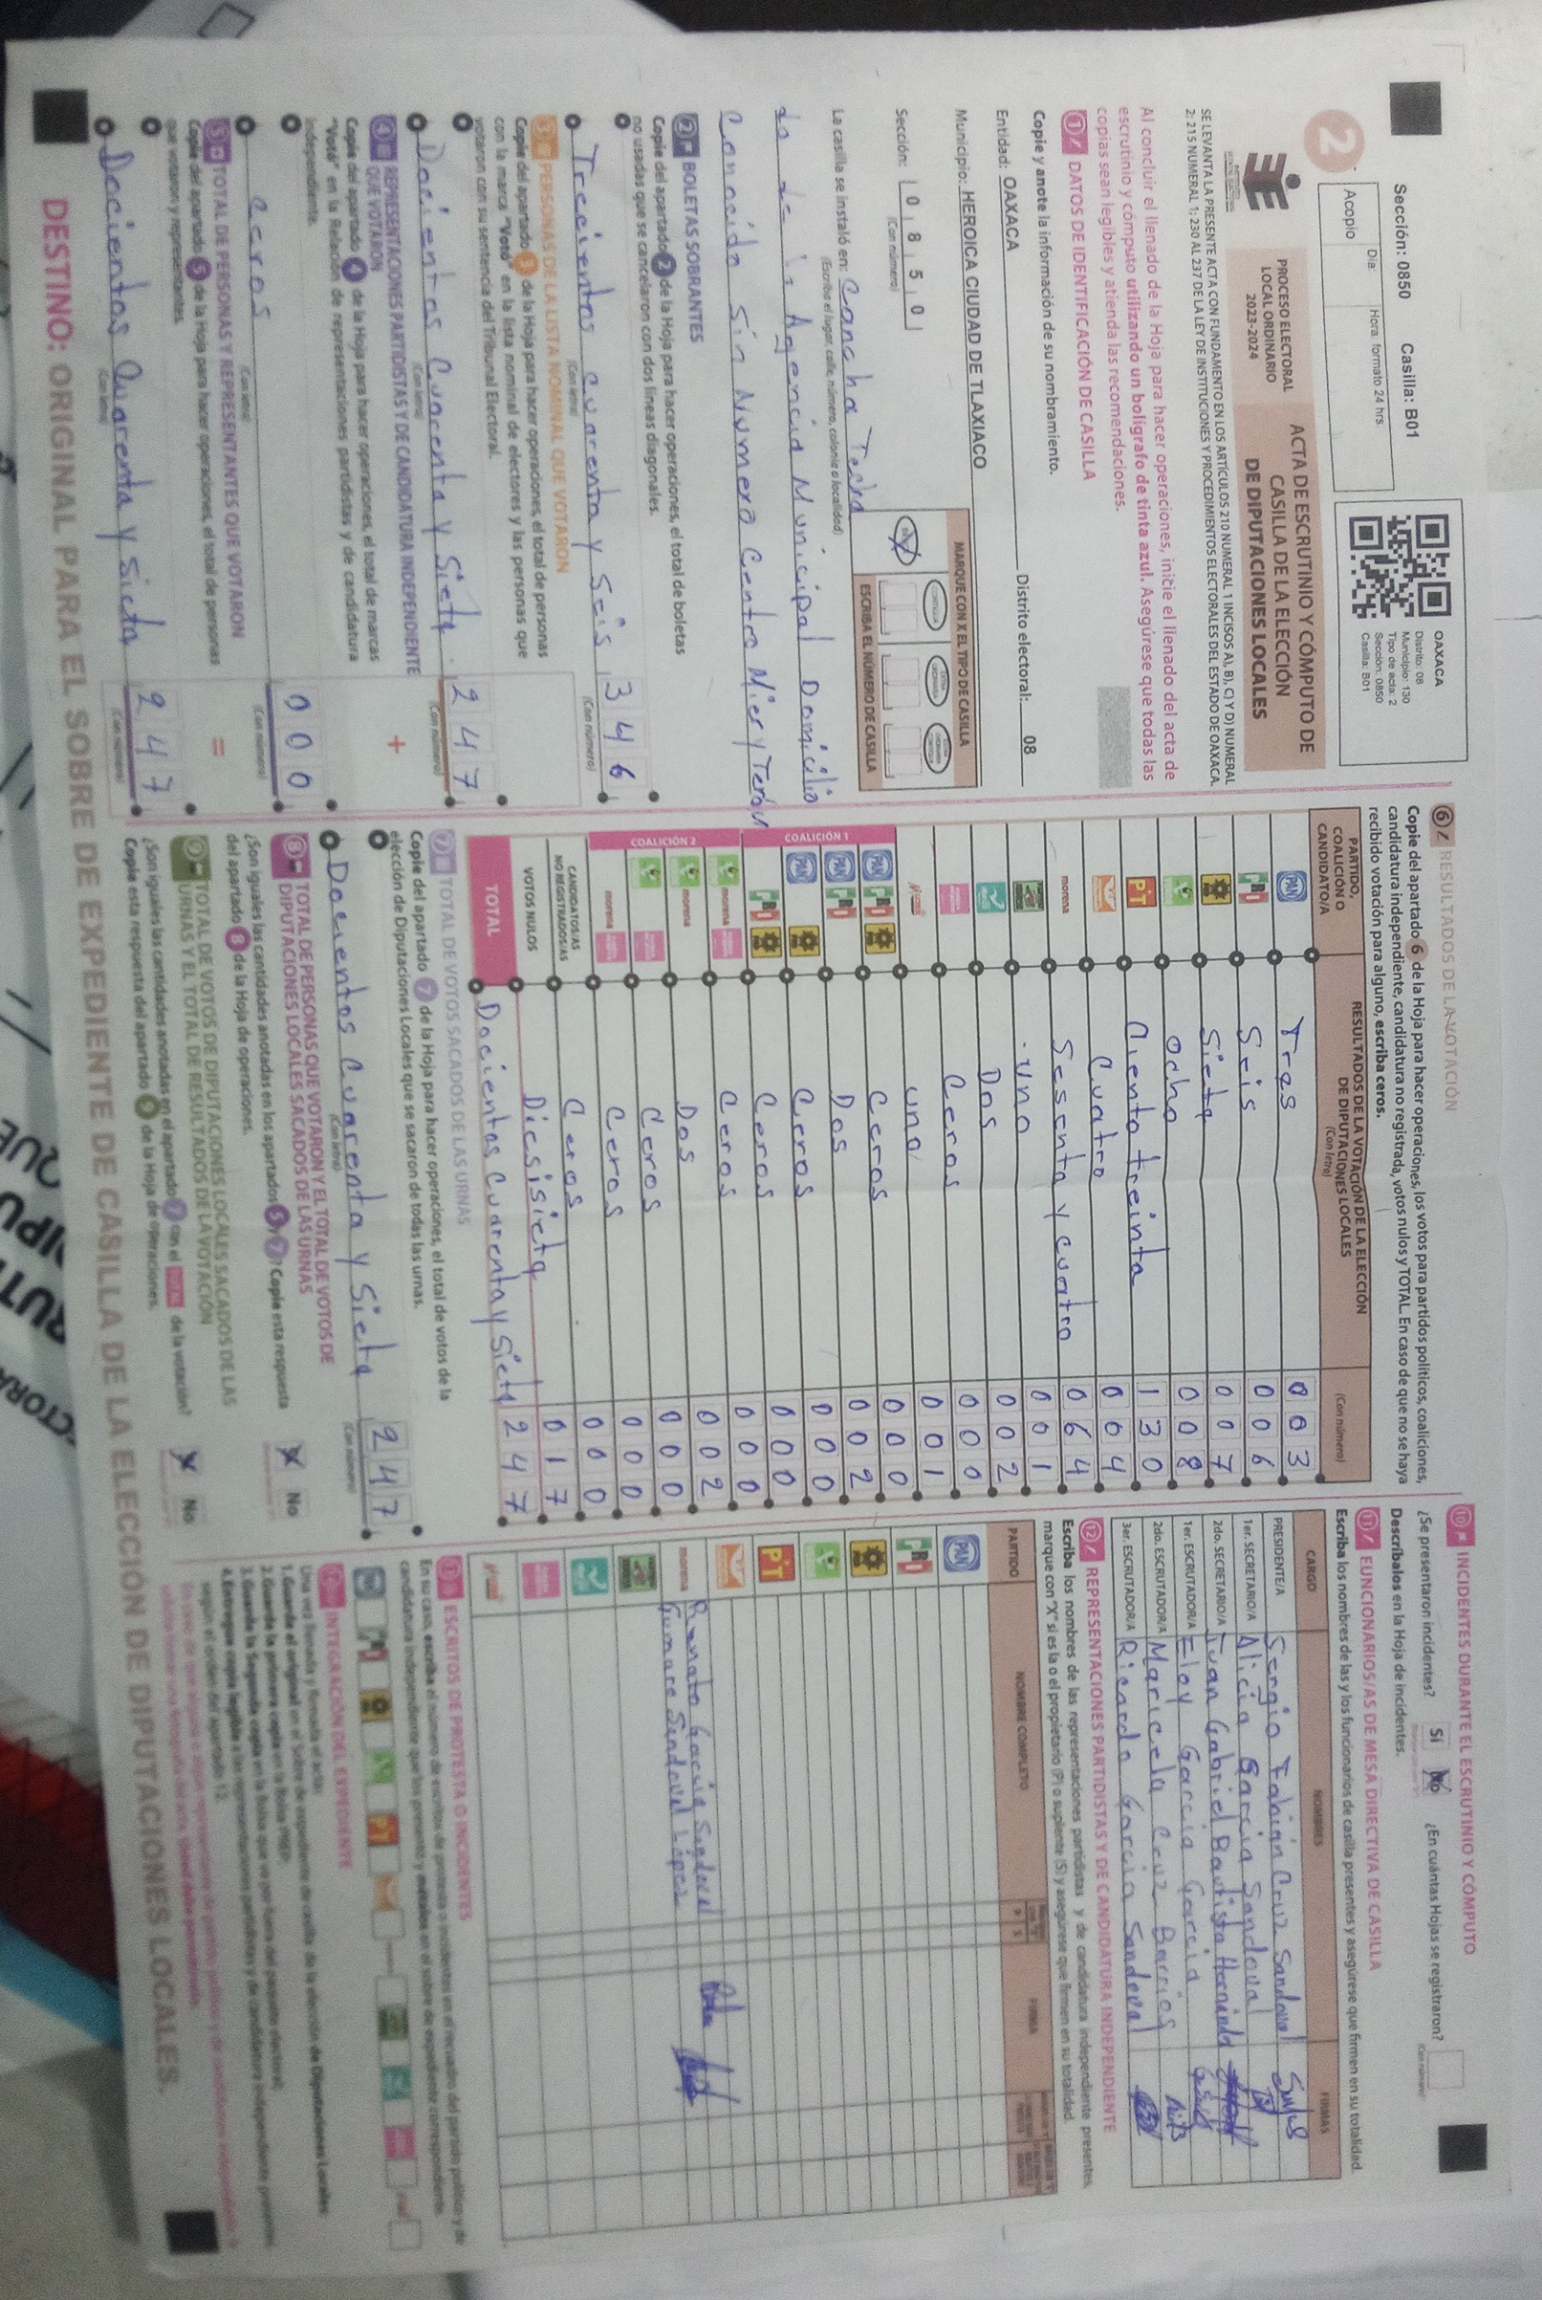 Sección: 0850 Casilla: B01
Día: Hora: formato 24 hrs.
Acopio
OAXACA
Distrito: 08
Municipio: 130
Tipo de acta: 2
Sección: 0850
Casilla: B01
2
PROCESO ELECTORAL
LOCAL ORDINARIO
2023-2024
ACTA DE ESCRUTINIO Y CÓMPUTO DE
CASILLA DE LA ELECCIÓN
DE DIPUTACIONES LOCALES
SE LEVANTA LA PRESENTE ACTA CON FUNDAMENTO EN LOS ARTÍCULOS 210 NUMERAL 1 INCISOS A), B), C) Y D) NUMERAL
2; 215 NUMERAL 1; 230 AL 237 DE LA LEY DE INSTITUCIONES Y PROCEDIMIENTOS ELECTORALES DEL ESTADO DE OAXACA.
Al concluir el llenado de la Hoja para hacer operaciones, inicie el llenado del acta de
escrutinio y cómputo utilizando un bolígrafo de tinta azul. Asegúrese que todas las
copias sean legibles y atienda las recomendaciones.
1 DATOS DE IDENTIFICACIÓN DE CASILLA
Copie y anote la información de su nombramiento.
Entidad: OAXACA Distrito electoral: 08
Municipio: HEROICA CIUDAD DE TLAXIACO
Sección: 0 8 5 0
(Con número)
MARQUE CON X EL TIPO DE CASILLA
ESCRIBA EL NÚMERO DE CASILLA
La casilla se instaló en: Cancha Techa
(Escriba el lugar, calle, número, colonia o localidad)
da de la Agencia Municipal Domicilio
Conocido Sin Numero Centro Mier y Terán
2 BOLETAS SOBRANTES
Copie del apartado 2 de la Hoja para hacer operaciones, el total de boletas
no usadas que se cancelaron con dos líneas diagonales.
Trecientos cuarenta y Seis 3 4 6
(Con letra) (Con número)
3 PERSONAS DE LA LISTA NOMINAL QUE VOTARON
Copie del apartado 3 de la Hoja para hacer operaciones, el total de personas
con la marca "Votó" en la lista nominal de electores y las personas que
votaron con su sentencia del Tribunal Electoral.
Docientos Cuarenta y Siete 2 4 7
(Con letra) (Con número)
4 REPRESENTACIONES PARTIDISTAS Y DE CANDIDATURA INDEPENDIENTE
QUE VOTARON +
Copie del apartado 4 de la Hoja para hacer operaciones, el total de marcas
"Votó" en la Relación de representaciones partidistas y de candidatura
independiente.
ceros 0 0 0
(Con letra) (Con número)
5 TOTAL DE PERSONAS Y REPRESENTANTES QUE VOTARON =
Copie del apartado 5 de la Hoja para hacer operaciones, el total de personas
que votaron y representantes.
Docientos Cuarenta y Siete 2 4 7
(Con letra) (Con número)
6 RESULTADOS DE LA VOTACIÓN
Copie del apartado 6 de la Hoja para hacer operaciones, los votos para partidos políticos, coaliciones,
candidatura independiente, candidatura no registrada, votos nulos y TOTAL. En caso de que no se haya
recibido votación para alguno, escriba ceros.
PARTIDO, COALICIÓN O CANDIDATO/A
RESULTADOS DE LA VOTACIÓN DE LA ELECCIÓN DE DIPUTACIONES LOCALES
(Con letra) (Con número)
PAN Tres 0 0 3
PRI Seis 0 0 6
PRD Siete 0 0 7
Ocho 0 0 8
PT Ciento treinta 1 3 0
Cuatro 0 0 4
morena Sesenta y cuatro 0 6 4
Uno 0 0 1
Dos 0 0 2
Ceros 0 0 0
uno 0 0 1
COALICIÓN 1
PAN PRI PRD Ceros 0 0 0
PAN PRI Dos 0 0 2
PAN PRD Ceros 0 0 0
PRI PRD Ceros 0 0 0
COALICIÓN 2
morena Ceros 0 0 0
morena Dos 0 0 2
Ceros 0 0 0
morena Ceros 0 0 0
CANDIDATOS/AS NO REGISTRADOS/AS Ceros 0 0 0
VOTOS NULOS Diesisiete 0 1 7
TOTAL Docientos Cuarenta y Siete 2 4 7
7 TOTAL DE VOTOS SACADOS DE LAS URNAS
Copie del apartado 7 de la Hoja para hacer operaciones, el total de votos de la
elección de Diputaciones Locales que se sacaron de todas las urnas.
Docientos Cuarenta y Siete 2 4 7
(Con letra) (Con número)
8 TOTAL DE PERSONAS QUE VOTARON Y EL TOTAL DE VOTOS DE
DIPUTACIONES LOCALES SACADOS DE LAS URNAS
¿Son iguales las cantidades anotadas en los apartados 5 y 7? Copie esta respuesta
del apartado 8 de la Hoja de operaciones. No
9 TOTAL DE VOTOS DE DIPUTACIONES LOCALES SACADOS DE LAS
URNAS Y EL TOTAL DE RESULTADOS DE LA VOTACIÓN
¿Son iguales las cantidades anotadas en el apartado 7 con el TOTAL de la votación?
Copie esta respuesta del apartado 9 de la Hoja de operaciones. No
10 INCIDENTES DURANTE EL ESCRUTINIO Y CÓMPUTO
¿Se presentaron incidentes? Sí No ¿En cuántas Hojas se registraron?
(Con número)
Descríbalos en la Hoja de incidentes.
11 FUNCIONARIOS/AS DE MESA DIRECTIVA DE CASILLA
Escriba los nombres de las y los funcionarios de casilla presentes y asegúrese que firmen en su totalidad.
CARGO NOMBRES FIRMAS
PRESIDENTE/A Sergio Fabián Cruz Sandoval
1er. SECRETARIO/A Alicia Garcia Sandoval
2do. SECRETARIO/A Juan Gabriel Bautista Hernández
1er. ESCRUTADOR/A Eloy Garcia Garcia
2do. ESCRUTADOR/A Maricela Cruz Barrios
3er. ESCRUTADOR/A Ricardo Garcia Sandoval
12 REPRESENTACIONES PARTIDISTAS Y DE CANDIDATURA INDEPENDIENTE
Escriba los nombres de las representaciones partidistas y de candidatura independiente presentes,
marque con "X" si es la o el propietario (P) o suplente (S) y asegúrese que firmen en su totalidad.
PARTIDO NOMBRE COMPLETO FIRMA
PAN
PRI
PRD
PT
morena Renato Garcia Sandoval
Gumaro Sandoval López
13 ESCRITOS DE PROTESTA O INCIDENTES
En su caso, escriba el número de escritos de protesta o incidentes en el recuadro del partido político y de
candidatura independiente que los presentó y métalos en el sobre de expediente correspondiente.
INTEGRACIÓN DEL EXPEDIENTE
Una vez llenada y firmada el acta:
1. Guarde el original en el Sobre de expediente de casilla de la elección de Diputaciones Locales
DESTINO: ORIGINAL PARA EL SOBRE DE EXPEDIENTE DE CASILLA DE LA ELECCIÓN DE DIPUTACIONES LOCALES.